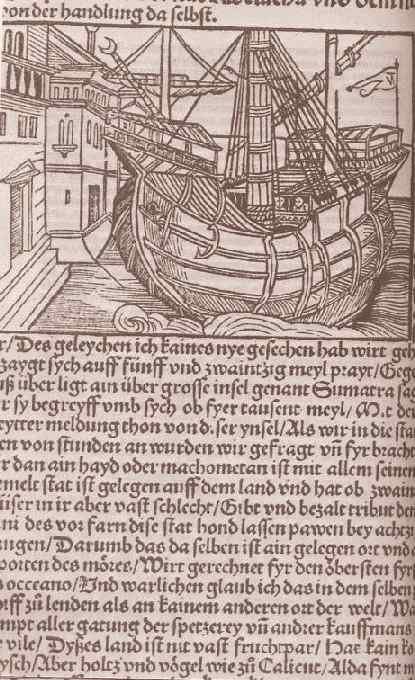 von der handlung da selbst.
r/ Des geleychen ich kaines nye gesechen hab wirt geh
zaygt sych auff fünff vnd zwaintzig meyl prayt/ Gege
ß über ligt ain über grosse insel genant Sumatra sa
r sy begreyff vmb sych ob fyer tausent meyl/ Mit de
eytter meldung thon von diser ynsel/ Als wir in die sta
en von stunden an wurden wir gefragt vñ fyr bracht
r dan ain hayd oder machometan ist mit allem seinen
emelt stat ist gelegen auff dem land vnd hat ob zwain
üser in ir aber vast schlecht/ Gibt vnd bezalt tribut den
ni des vor farn dise stat hond lassen pawen bey achtzi
ungen/ Darumb das da selben ist ain gelegen ort vnd
porten des möres/ Wirt gerechnet fyr den öbersten fyr
s occeano/ Vnd warlichen glaub ich das in dem selben
iff zů lenden als an kainem anderen ort der welt/ Wa
mpt aller gatung der spetzerey vñ andrer kauffmans
r vile/ Dyßes land ist nit vast fruchtpar/ Hat kain ko
ysch/ Aber holtz vnd vögel wie zů Calicut/ Alda fynt m